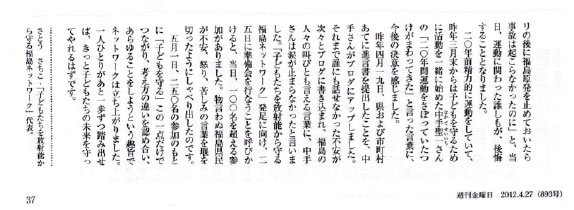 リの後に福島原発を止めておいたら
事故は起こらなかったのに」と、当
日、運動に関わった誰しもが、後悔
することとなりました。
二〇年前精力的に運動をしていて、
昨年三月末からは子どもを守るため
に活動を一緒に始めた中手聖一さん
の「二〇年間運動をさぼっていたつ
けがまわってきた」と言った言葉に、
今後の決意を感じました。
昨年四月一九日、県および市町村
あてに進言書を提出したことを、中
手さんがブログにアップしました。
それまで誰にも話せなかった不安が
次々とブログに書き込まれ、福島の
人々の叫びとも言える言葉に、中手
さんは涙が止まらなかったと言いま
した。「子どもたちを放射能から守る
福島ネットワーク」発足に向け、二
五日に準備会を行なうことを呼びか
けると、当日、一〇〇名を超える参
加がありました。物言わぬ福島県民
が不安、怒り、苦しみの言葉を堰を
切ったようにしゃべり出したのです。
五月一日、二五〇名の参加のもと
に「子どもを守る」この一点だけで
つながり、考え方の違いを認め合い、
あらゆることをしようという趣旨で
ネットワークは立ち上がりました。
一人ひとりがあと一歩ずつ踏み出せ
ば、きっと子どもたちの未来を守っ
てやれるはずです。
さとう さちこ・「子どもたちを放射能か
ら守る福島ネットワーク」代表。
37
週刊金曜日 2012.4.27 (893号)